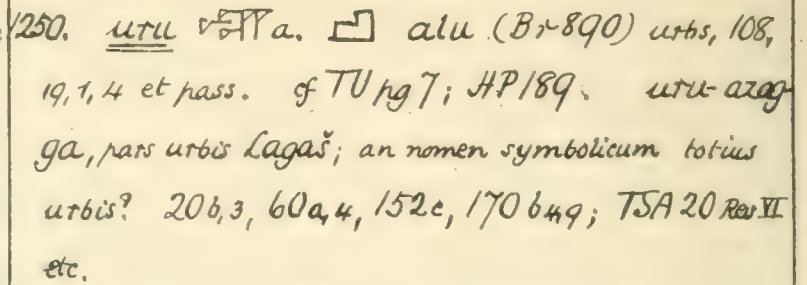 1250. uru a. alu (Br 890) urbs, 108,
19,1,4 et pass. cf TU pg 7; HP 189. uru-azag-
ga, pars urbis Lagaš; an nomen symbolicum totius
urbis? 20b,3, 60a,4, 152c, 170b 4,9; TSA 20 Rev VI
etc.